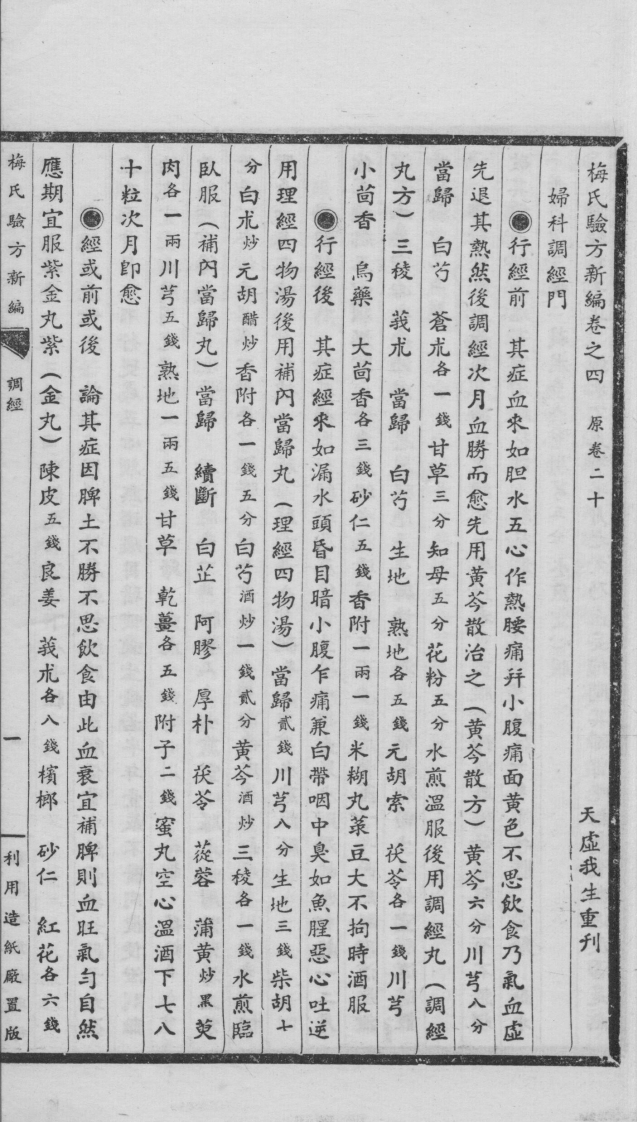 梅氏驗方新編卷之四　原卷二十　天虛我生重刊
婦科調經門
行經前　其症血來如胆水五心作熱腰痛幷小腹痛面黃色不思飲食乃氣血虛
先退其熱然後調經次月血勝而愈先用黃芩散治之（黃芩散方）黃芩六分川芎八分
當歸　白芍　蒼朮各一錢甘草三分知母五分花粉五分水煎溫服後用調經丸（調經
丸方）三稜　莪朮　當歸　白芍　生地　熟地各五錢元胡索　茯苓各一錢川芎
小茴香　烏藥　大茴香各三錢砂仁五錢香附一兩一錢米糊丸菉豆大不拘時酒服
行經後　其症經來如漏水頭昏目暗小腹乍痛兼白帶咽中臭如魚腥惡心吐逆
用理經四物湯後用補內當歸丸（理經四物湯）當歸貳錢川芎八分生地三錢柴胡十
分白朮炒元胡醋炒香附各一錢五分白芍酒炒一錢貳分黃芩酒炒三稜各一錢水煎臨
臥服（補內當歸丸）當歸　續斷　白芷　阿膠　厚朴　茯苓　蓯蓉　蒲黃炒黑萸
肉各一兩川芎五錢熟地一兩五錢甘草　乾薑各五錢附子二錢蜜丸空心溫酒下七八
十粒次月卽愈
經或前或後　論其症因脾土不勝不思飲食由此血衰宜補脾則血旺氣勻自然
應期宜服紫金丸紫（金丸）陳皮五錢良姜　莪朮各八錢檳榔　砂仁　紅花各六錢
梅氏驗方新編　調經　一　利用造紙廠置版